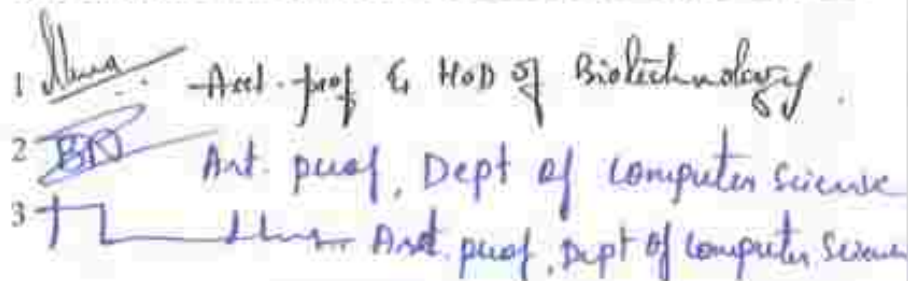 1 Asst. prof & HoD of Biotechnology.
2 BN Asst. prof, Dept of computer science
3 Asst. prof, Dept of computer Scien